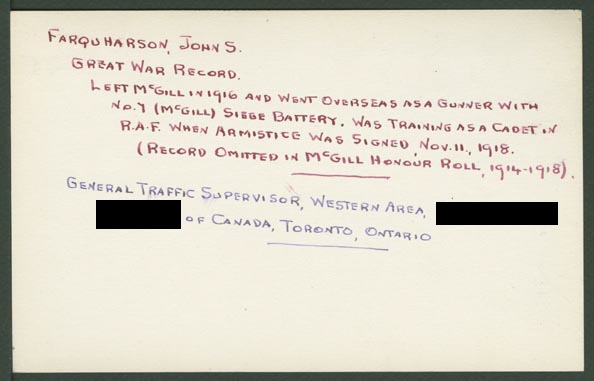 FARQUHARSON, JOHN S.
GREAT WAR RECORD.
LEFT McGILL IN 1916 AND WENT OVERSEAS AS A GUNNER WITH
No. 7 (McGILL) SIEGE BATTERY. WAS TRAINING AS A CADET IN
R.A.F. WHEN ARMISTICE WAS SIGNED, NOV. 11, 1918.
(RECORD OMITTED IN McGILL HONOUR ROLL, 1914-1918).
GENERAL TRAFFIC SUPERVISOR, WESTERN AREA,
OF CANADA, TORONTO, ONTARIO